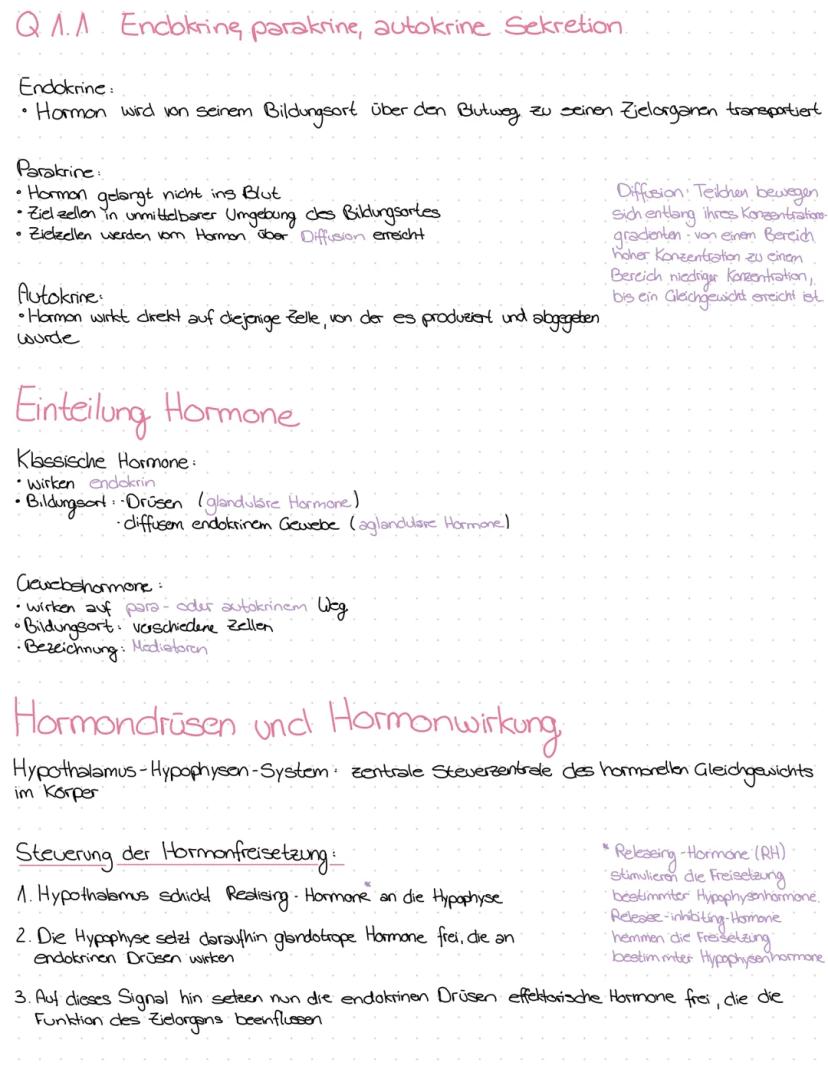 Q 1.1 Endokrine, parakrine, autokrine Sekretion
Endokrine:
• Hormon wird von seinem Bildungsort über den Blutweg zu seinen Zielorganen transportiert
Parakrine:
• Hormon gelangt nicht ins Blut
• Zielzellen in unmittelbarer Umgebung des Bildungsortes
• Zielzellen werden vom Hormon über Diffusion erreicht
Diffusion: Teilchen bewegen
sich entlang ihres Konzentrations-
gradienten - von einem Bereich
hoher Konzentration zu einem
Bereich niedriger Konzentration,
bis ein Gleichgewicht erreicht ist
Autokrine:
• Hormon wirkt direkt auf diejenige Zelle, von der es produziert und abgegeben
wurde
Einteilung Hormone
Klassische Hormone:
• wirken endokrin
• Bildungsort: · Drüsen (glanduläre Hormone)
· diffusem endokrinem Gewebe (aglanduläre Hormone)
Gewebshormone:
• wirken auf para- oder autokrinem Weg
• Bildungsort: verschiedene Zellen
• Bezeichnung: Mediatoren
Hormondrüsen und Hormonwirkung
Hypothalamus-Hypophysen-System: zentrale Steuerzentrale des hormonellen Gleichgewichts
im Körper
Steuerung der Hormonfreisetzung:
1. Hypothalamus schickt Realising-Hormone* an die Hypophyse
2. Die Hypophyse setzt daraufhin glandotrope Hormone frei, die an
endokrinen Drüsen wirken
* Releasing-Hormone (RH)
stimulieren die Freisetzung
bestimmter Hypophysenhormone.
Release-inhibiting-Hormone
hemmen die Freisetzung
bestimmter Hypophysenhormone
3. Auf dieses Signal hin setzen nun die endokrinen Drüsen effektorische Hormone frei, die die
Funktion des Zielorgans beeinflussen